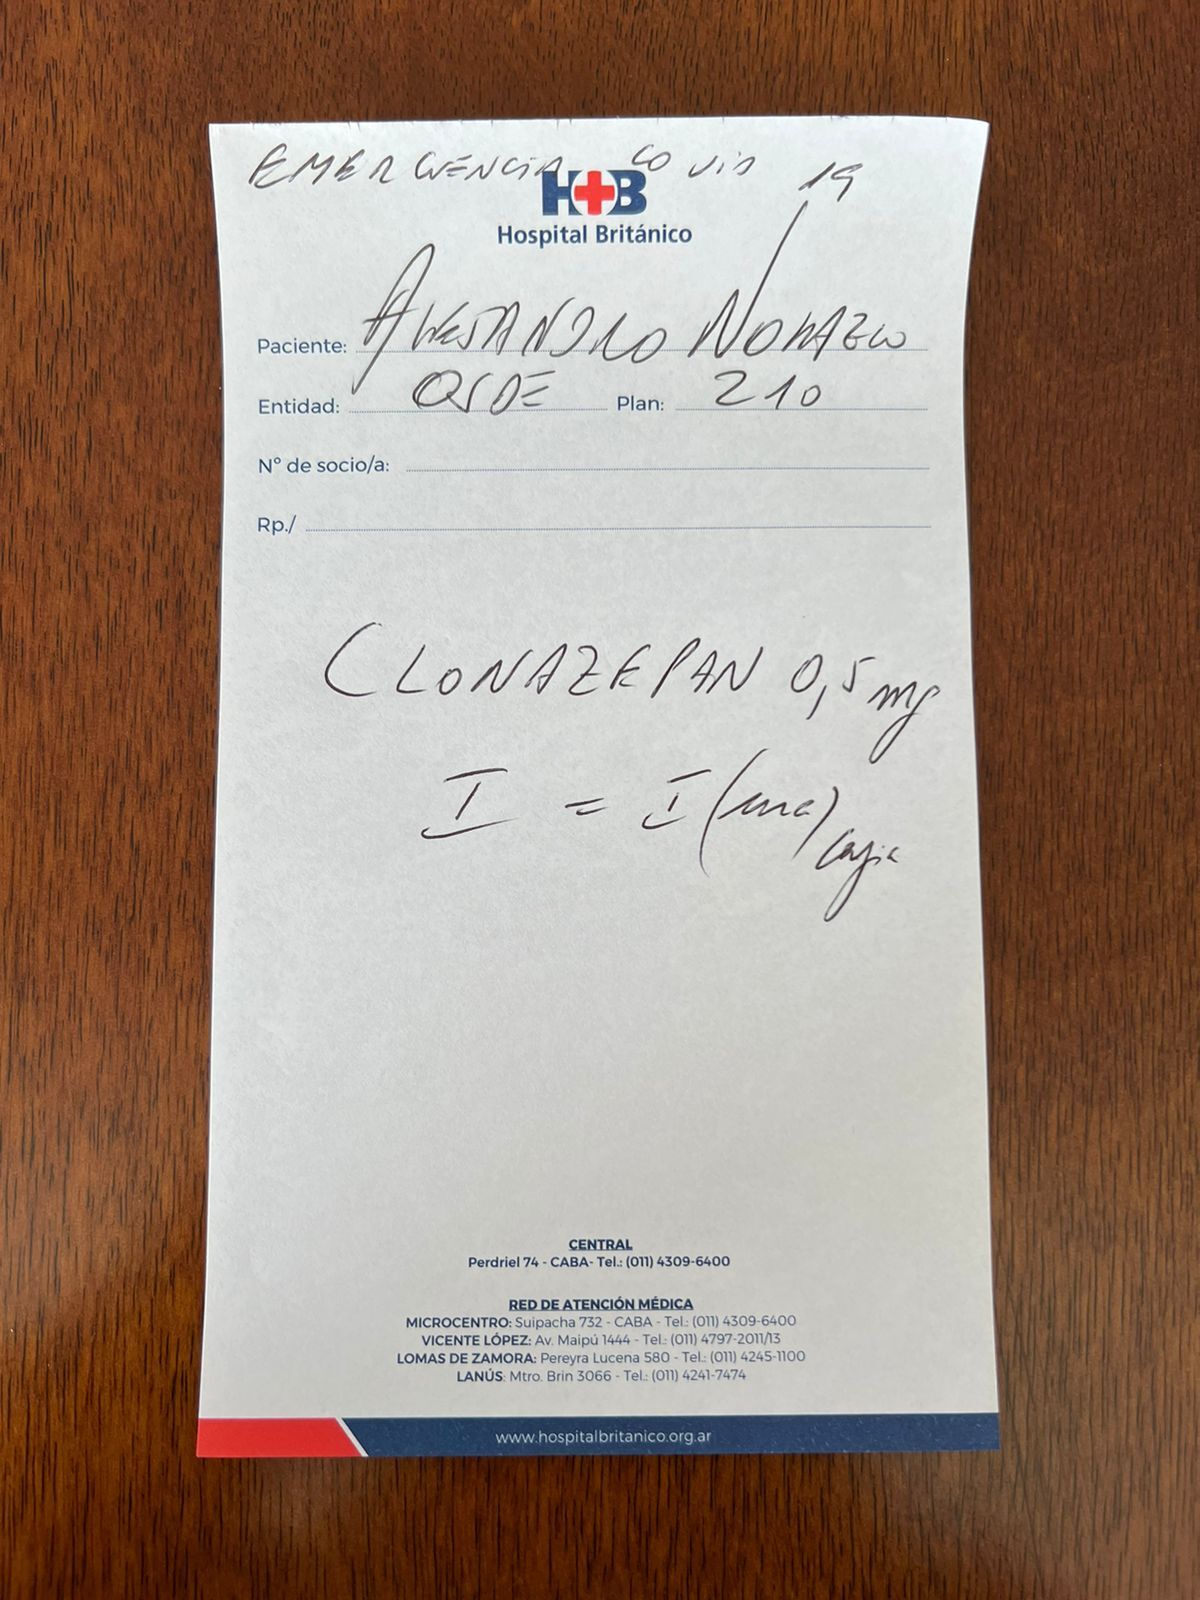 EMERGENCIA COVID 19
H+B
Hospital Británico
Paciente: Alejandro
Entidad: OSDE Plan: 210
N° de socio/a:
Rp./
CLONAZEPAN 0,5 mg
I = I (una) caja
CENTRAL
Perdriel 74 - CABA- Tel.: (011) 4309-6400
RED DE ATENCIÓN MÉDICA
MICROCENTRO: Suipacha 732 - CABA - Tel.: (011) 4309-6400
VICENTE LÓPEZ: Av. Maipú 1444 - Tel.: (011) 4797-2011/13
LOMAS DE ZAMORA: Pereyra Lucena 580 - Tel.: (011) 4245-1100
LANÚS: Mtro. Brin 3066 - Tel.: (011) 4241-7474
www.hospitalbritanico.org.ar